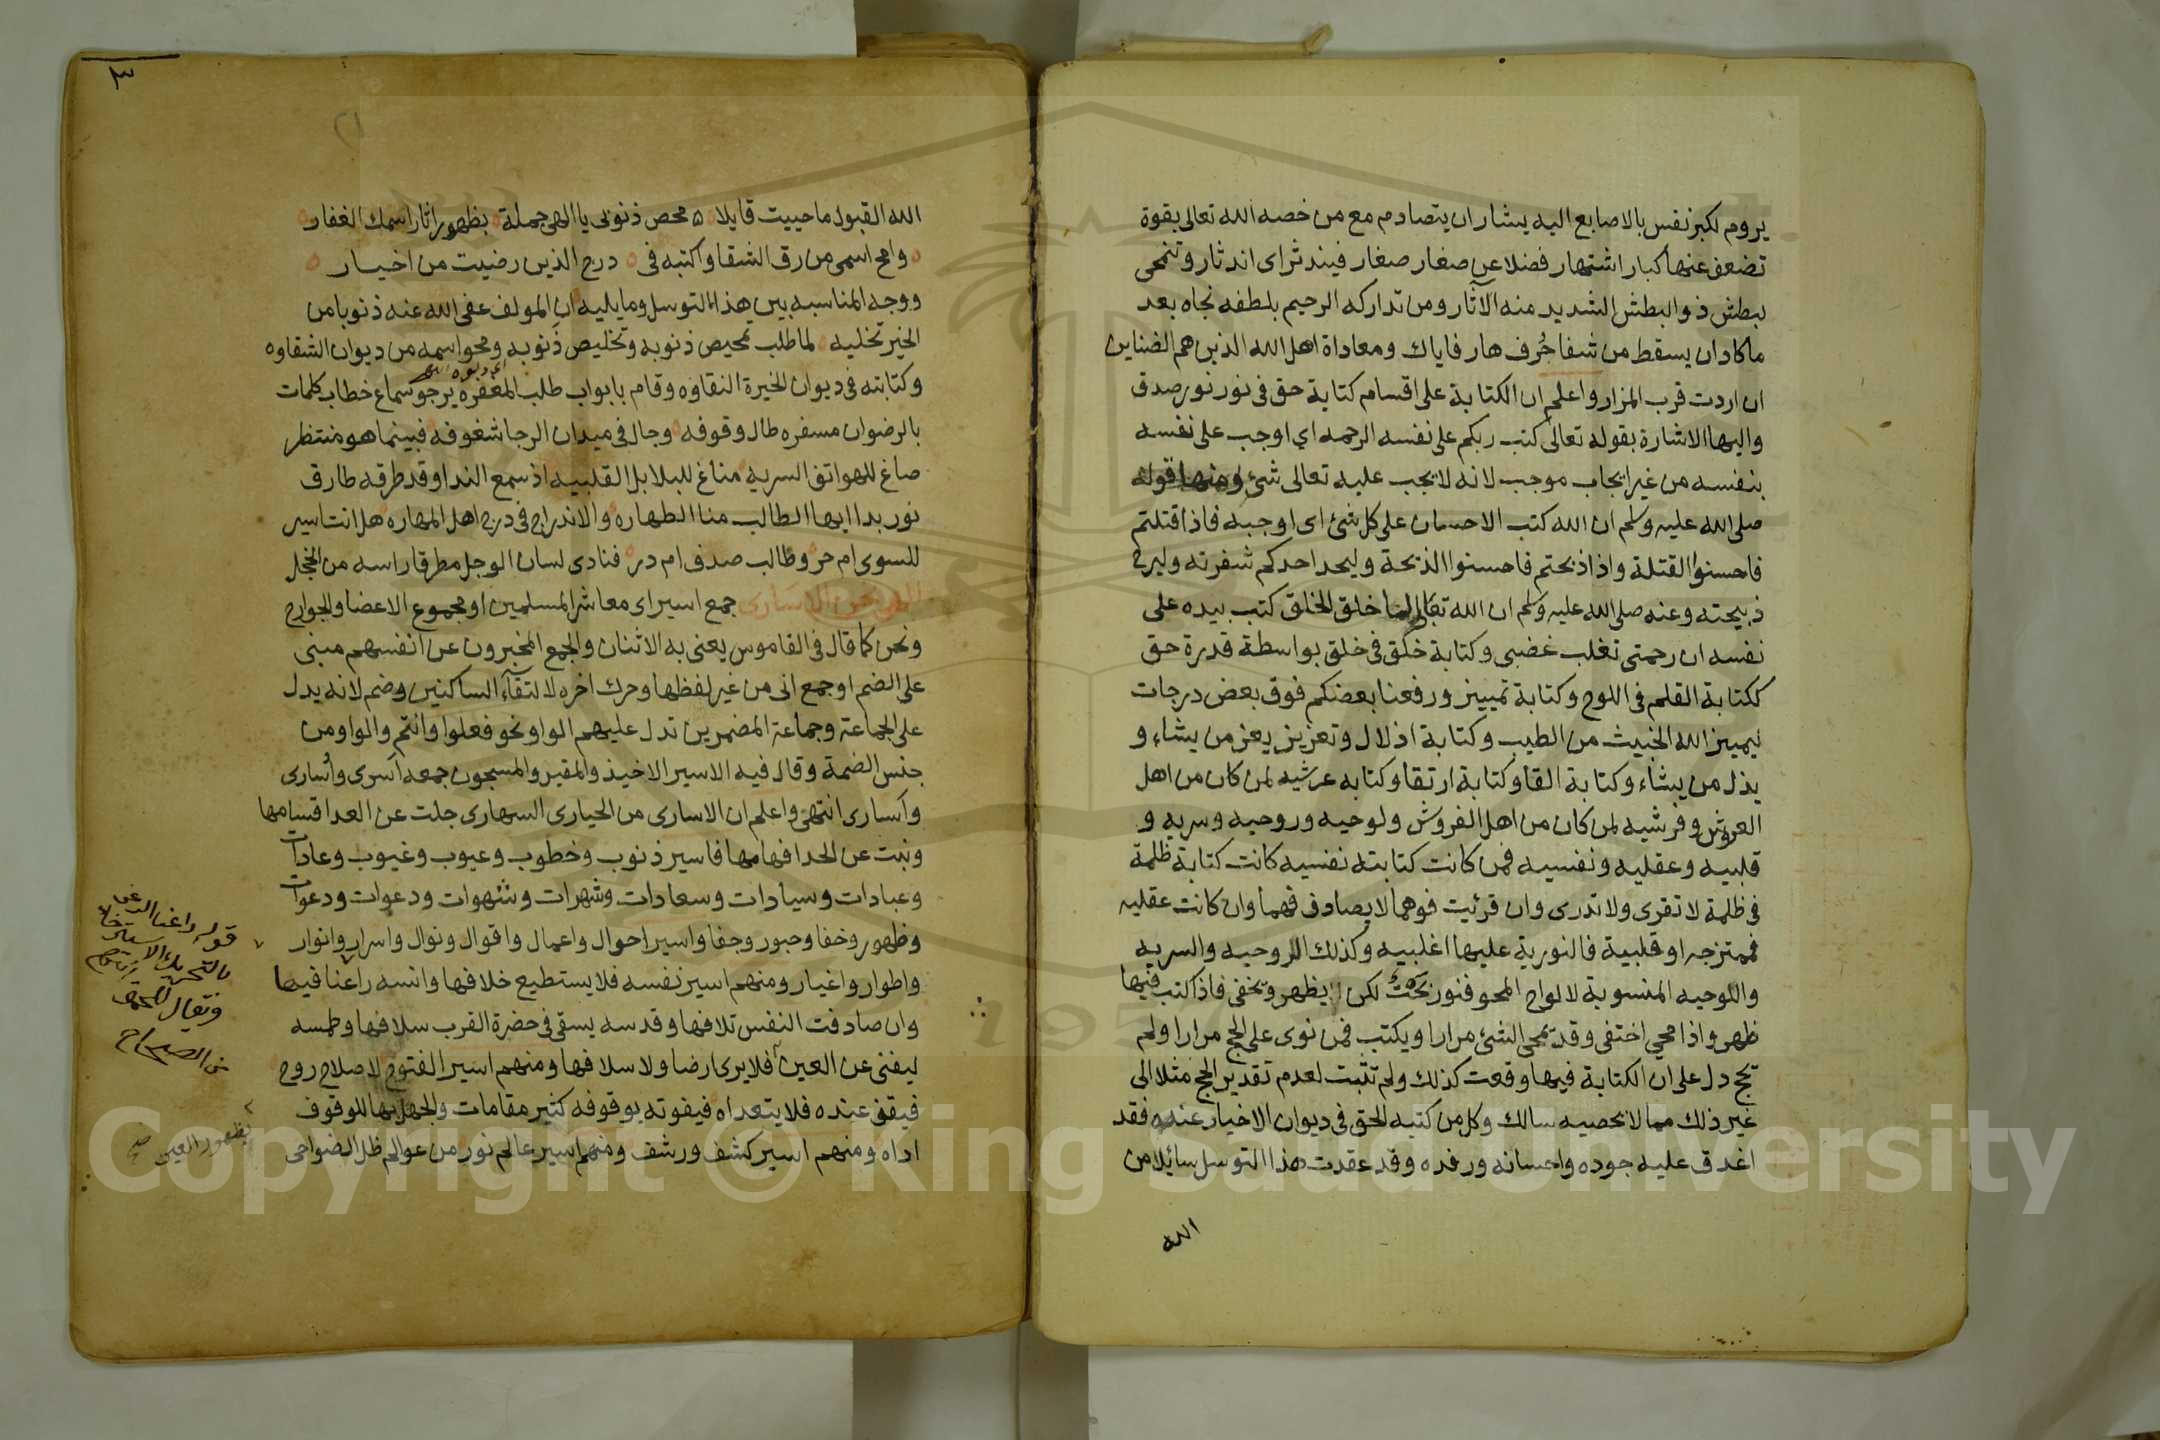 يروم لكبر نفس بالاصابع اليه يشار ان يتصادم مع من خصه الله تعالى بقوة
تضعف عنها كبار اشتهار فضلا عن صغار صغار فيندثر اى اندثار وتنمحى
ببطش ذو البطش الشديد منه الآثار ومن تداركه الرحيم بلطفه نجاه بعد
ما كاد ان يسقط من شفا جُرف هار فاياك ومعاداة اهل الله الذين هم الضناين
ان اردت قرب المزار واعلم ان الكتابة على اقسام كتابة حق فى نور نور صدق
واليها الاشارة بقوله تعالى كتب ربكم على نفسه الرحمه اي اوجب على نفسه
بنفسه من غير ايجاب موجب لانه لا يجب عليه تعالى شئ ومنها قوله
صلى الله عليه وسلم ان الله كتب الاحسان على كل شئ اى اوجبه فاذا قتلتم
فاحسنوا القتلة واذا ذبحتم فاحسنوا الذبحة وليحد احدكم شفرته وليرح
ذبيحته وعنه صلى الله عليه وسلم ان الله تعالى لما خلق الخلق كتب بيده على
نفسه ان رحمتى تغلب غضبى وكتابة خلق فى خلق بواسطة قدرة حق
ككتابة القلم فى اللوح وكتابة تمييز ورفعنا بعضكم فوق بعض درجات
ليميز الله الخبيث من الطيب وكتابة اذلال وتعزيز يعز من يشاء و
يذل من يشاء وكتابة القا وكتابة ارتقا وكتابه عرشيه لمن كان من اهل
العروش وفرشيه لمن كان من اهل الفروش ولوحيه وروحيه وسريه و
قلبيه وعقليه ونفسيه فمن كانت كتابته نفسيه كانت كتابة ظلمة
فى ظلمة لا تقرى ولا تدرى وان قرئت فوهما لا يصادف فهما وان كانت عقليه
فممتزجه او قلبية فالنورية عليها اغلبيه وكذلك الروحيه والسريه
واللوحيه المنسوبة لالواح المحو فنور بحت لكن يظهر ويخفى فاذا كتب فيها
ظهر واذا محي اختفى وقد يمحى الشئ مرارا ويكتب فمن نوى على الحج مرارا ولم
يحج دل على ان الكتابة فيها وقعت كذلك ولم تثبت لعدم تقدير الحج مثلا الى
غير ذلك مما لا يحصيه سالك وكل من كتبه الحق فى ديوان الاخيار عنده فقد
اغدق عليه جوده واحسانه ورفده وقد عقدت هذا التوسل سائلا من
الله
٣
الله القبول ما حييت قايلا ه محص ذنوبى يا الهى جملة ه بظهور اثار اسمك الغفار
ه وامح اسمى من رق الشقا واكتبه فى ه درج الذين رضيت من اخيار ه
ووجه المناسبه بين هذا التوسل وما يليه ان المولف عفى الله عنه ذنوبا من
الخير تخليه لما طلب تمحيص ذنوبه وتخليص ذنوبه ومحو اسمه من ديوان الشقاوه
وكتابته فى ديوان الخيرة النقاوه وقام بابواب طلب المغفره يرجو سماع خطاب كلمات
بالرضوان مسفره طال وقوفه وجال فى ميدان الرجا شغوفه فبينما هو منتظر
صاغ للهواتف السريه مناغ للبلابل القلبيه اذ سمع الندا وقد طرقه طارق
نور بدا ايها الطالب منا الطهاره والاندراج فى درج اهل المهاره هل انت اسير
للسوى ام حر وطالب صدف ام در فنادى لسان الوجل مطرقا راسه من الخجل
الهى نحن الاسارى جمع اسير اى معاشر المسلمين او مجموع الاعضا والجوارح
ونحن كما قال فى القاموس يعنى به الاثنان والجمع المخبرون عن انفسهم مبنى
على الضم او جمع انى من غير لفظها وحرك اخره لالتقآء الساكنين وضم لانه يدل
على الجماعة وجماعة المضمرين تدل عليهم الواو نحو فعلوا وانتم والواو من
جنس الضمة وقال فيه الاسير الاخيذ والمقير والمسجون جمعه أسرى وأسارى
وأسارى انتهى واعلم ان الاسارى من الحيارى السهارى جلت عن العد اقسامها
ونبت عن الحد افهامها فاسير ذنوب وخطوب وعيوب وغيوب وعادات
وعبادات وسيادات وسعادات وشهرات وشهوات ودعوات ودعوات
وظهور وخفا وحبور وجفا واسير احوال واعمال واقوال ونوال واسرار وانوار
واطوار واغيار ومنهم اسير نفسه فلا يستطيع خلافها وانسه راعنا فيها
وان صادفت النفس تلافها وقدسه يسقى فى حضرة القرب سلافها وطمسه
ليفنى عن العين فلا يرى ارضا ولا سلافها ومنهم اسير الفتوح لاصلاح روح
فيقف عنده فلا يتعداه فيفوته بوقوفه كثير مقامات والجهل بها للوقوف
اداه ومنهم اسير كشف ورشف ومنهم اسير عالم نور من عوالم ظل الضواحى
بظهور العين صح
من الصحاح
Copyright © King Saud University